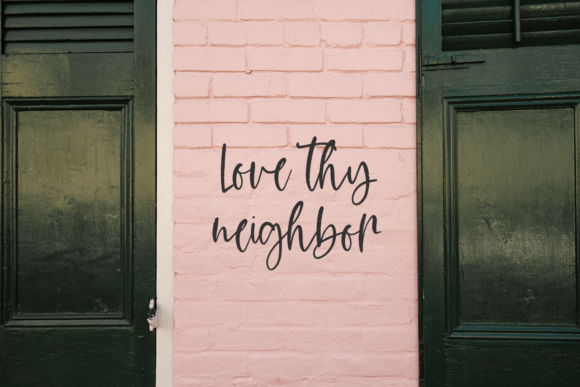 Love thy
neighbor